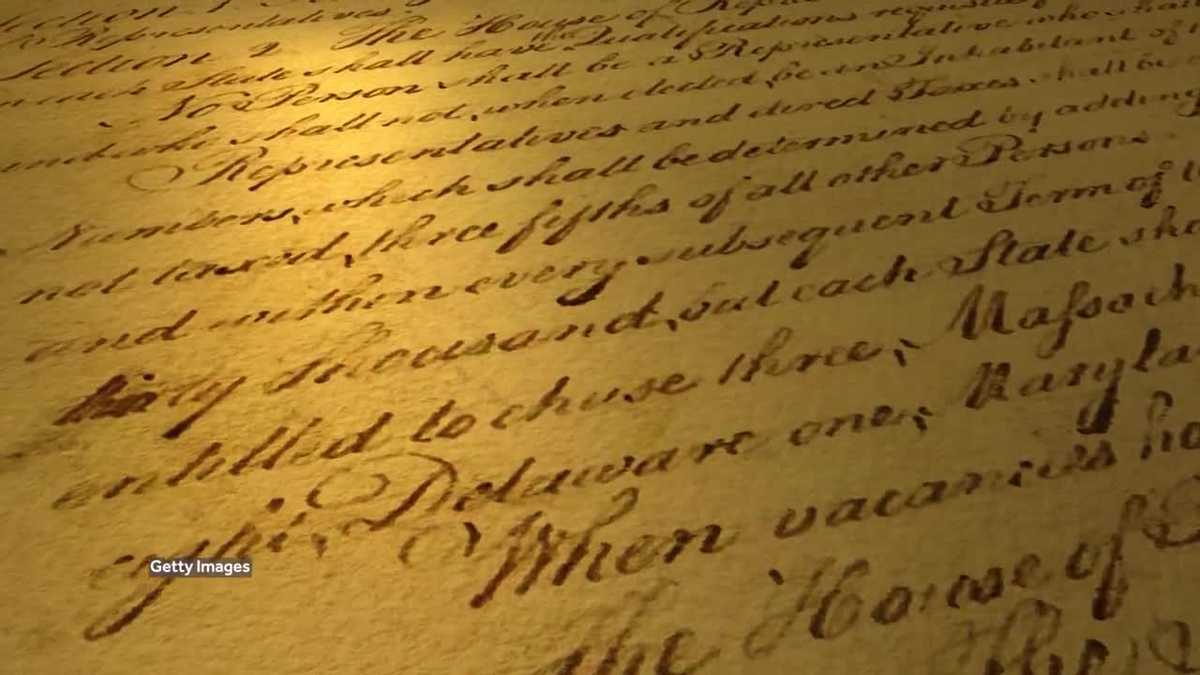 Section 2 The House of
in each State shall have Qualifications requisite
No Person shall be a Representative who shall
and who shall not, when elected, be an Inhabitant of
Representatives and direct Taxes shall be
Numbers, which shall be determined by adding
not taxed, three fifths of all other Persons
and within every subsequent Term of
thirty Thousand, but each State
entitled to chuse three, Massach
eight, Delaware one, Maryla
When vacancies ha
the House of
Getty Images